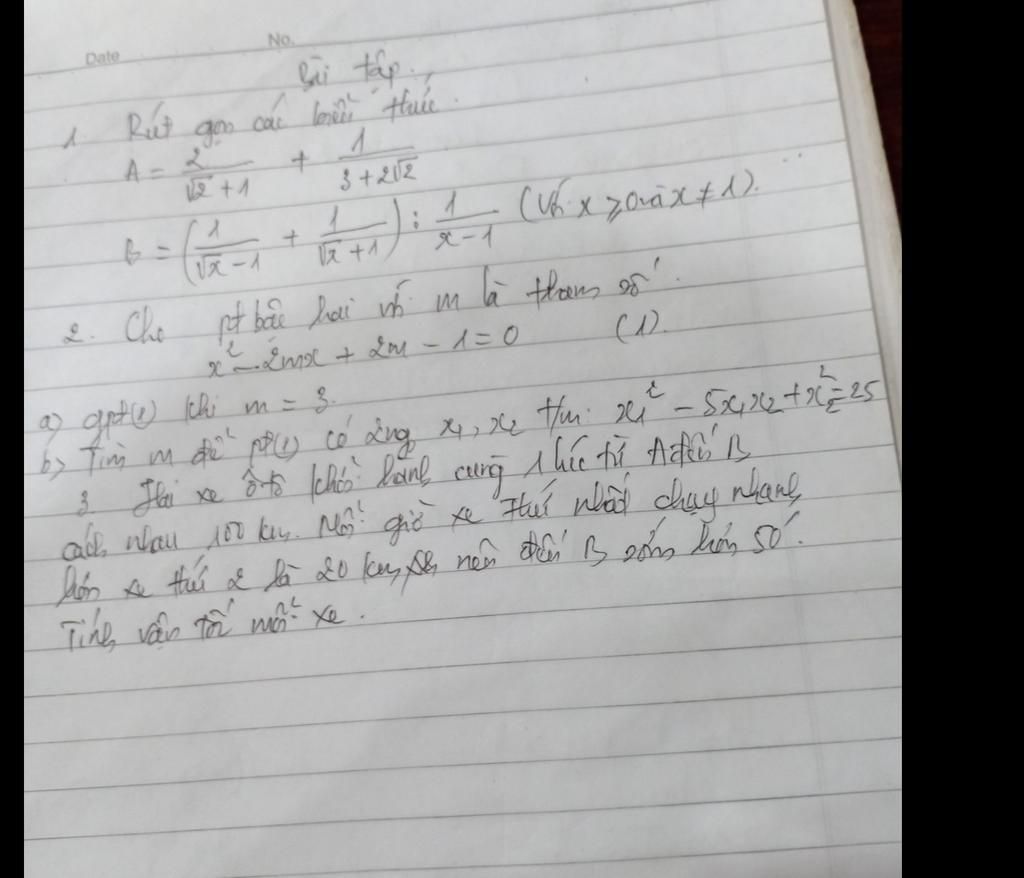 Date No.
Bài tập.
1. Rút gọn các biểu thức.
A = 2/(√2 + 1) + 1/(3 + 2√2)
B = (1/(√x - 1) + 1/(√x + 1)) : 1/(x - 1) (Với x ≥ 0 và x ≠ 1).
2. Cho pt bậc hai với m là tham số.
x² - 2mx + 2m - 1 = 0 (1).
a) gpt(1) khi m = 3.
b) Tìm m để pt(1) có 2 ng x₁, x₂ t/m: x₁² - 5x₁x₂ + x₂² = 25
3. Hai xe ô tô khởi hành cùng 1 lúc từ A đến B
cách nhau 100 km. Mỗi giờ xe thứ nhất chạy nhanh
hơn xe thứ 2 là 20 km, nên đến B sớm hơn 50'.
Tính vận tốc mỗi xe.